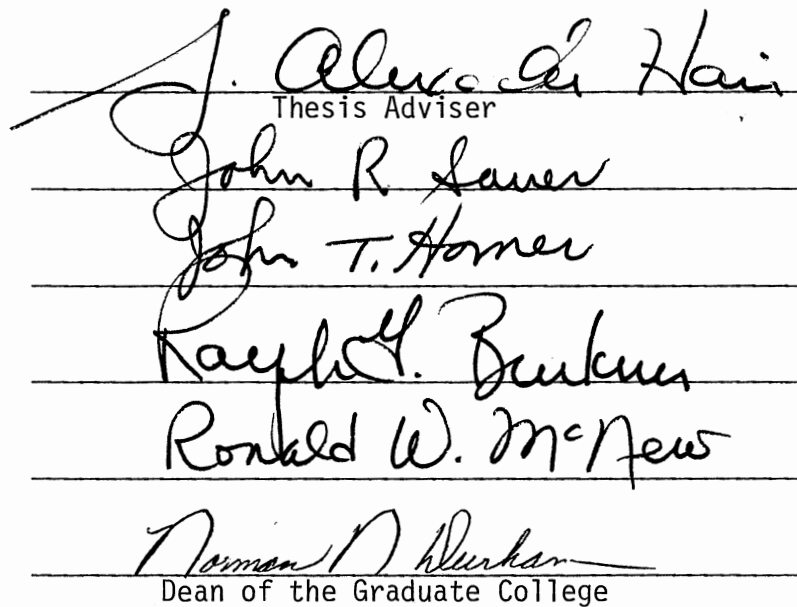 J. Alexander Hair
Thesis Adviser
John R Sauer
John T. Homer
Ralph G. Buckner
Ronald W. McNew
Norman N Durham
Dean of the Graduate College